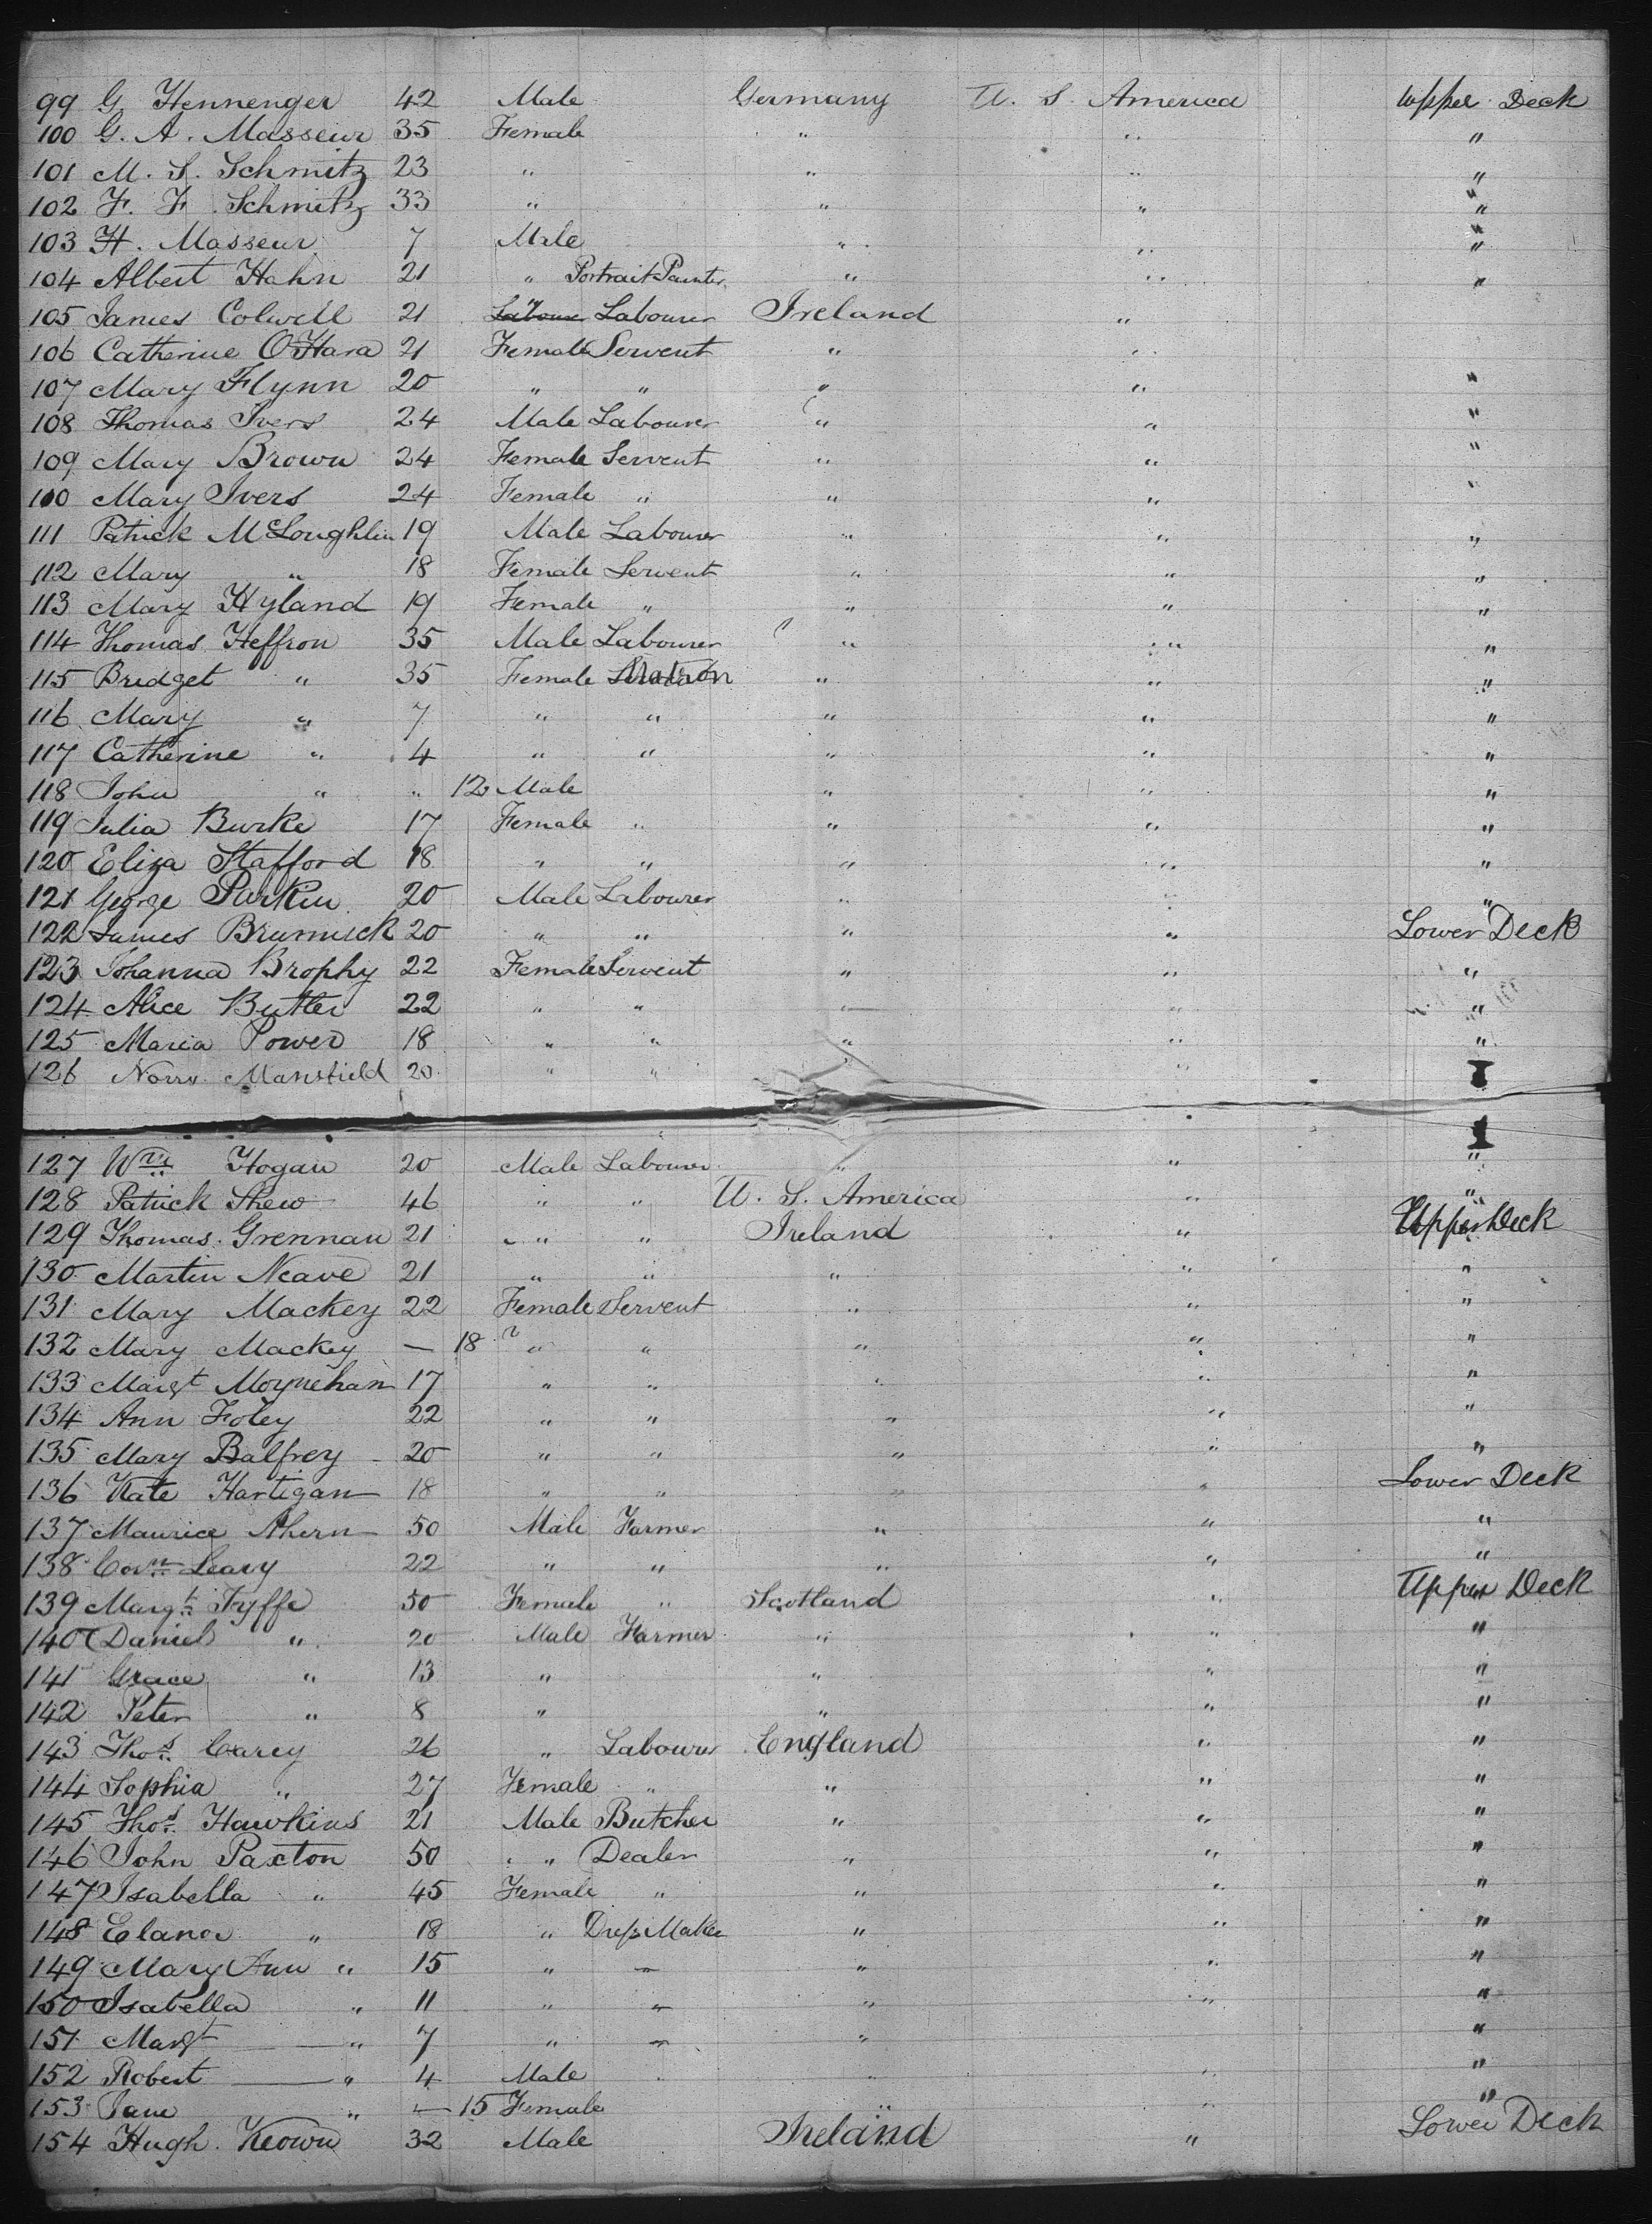 99 G. Hennenger 42 Male Germany U. S. America Upper Deck
100 G. A. Masseur 35 Female " " "
101 M. S. Schmitz 23 " " " "
102 F. F. Schmitz 33 " " " "
103 H. Masseur 7 Male " " "
104 Albert Hahn 21 " Portrait Painter " " "
105 James Colwell 21 Labourer Ireland "
106 Catherine O'Hara 21 Female Servent " "
107 Mary Flynn 20 " " " " "
108 Thomas Ivers 24 Male Labourer " " "
109 Mary Brown 24 Female Servent " " "
100 Mary Ivers 24 Female " " " "
111 Patrick McLoughlin 19 Male Labourer " " "
112 Mary " 18 Female Servent " " "
113 Mary Hyland 19 Female " " " "
114 Thomas Heffron 35 Male Labourer " " "
115 Bridget " 35 Female Matron " " "
116 Mary " 7 " " " " "
117 Catherine " 4 " " " " "
118 John " " 12 Male " " "
119 Julia Burke 17 Female " " " "
120 Eliza Stafford 18 " " " " "
121 George Parkin 20 Male Labourer " " "
122 James Brumick 20 " " " " Lower Deck
123 Johanna Brophy 22 Female Servent " " "
124 Alice Butler 22 " " " " "
125 Maria Power 18 " " " " "
126 Mansfield 20 " " "
127 Wm Hogan 20 Male Labourer " " "
128 Patrick Shew 46 " " U. S. America " "
129 Thomas Grennan 21 " " Ireland " Upper Deck
130 Martin Neave 21 " " " " "
131 Mary Mackey 22 Female Servent " " "
132 Mary Mackey — 18 " " " " "
133 Margt Moynehan 17 " " " " "
134 Ann Foley 22 " " " " "
135 Mary Balfrey 20 " " " " "
136 Kate Hartigan 18 " " " " Lower Deck
137 Maurice Ahern 50 Male Farmer " " "
138 Corn Leary 22 " " " " "
139 Margt Fyffe 50 Female " Scotland " Upper Deck
140 Daniel " 20 Male Farmer " " "
141 Grace " 13 " " " "
142 Peter " 8 " " " "
143 Thos Carey 26 " Labourer England " "
144 Sophia " 27 Female " " " "
145 Thos Hawkins 21 Male Butcher " " "
146 John Paxton 50 " Dealer " " "
147 Isabella " 45 Female " " " "
148 Elanor " 18 " Dress Maker " " "
149 Mary Ann " 15 " — " " "
150 Isabella " 11 " — " " "
151 Margt " 7 " — " " "
152 Robert " 4 Male " " "
153 Jane " — 15 Female " " "
154 Hugh Keown 32 Male Ireland " Lower Deck